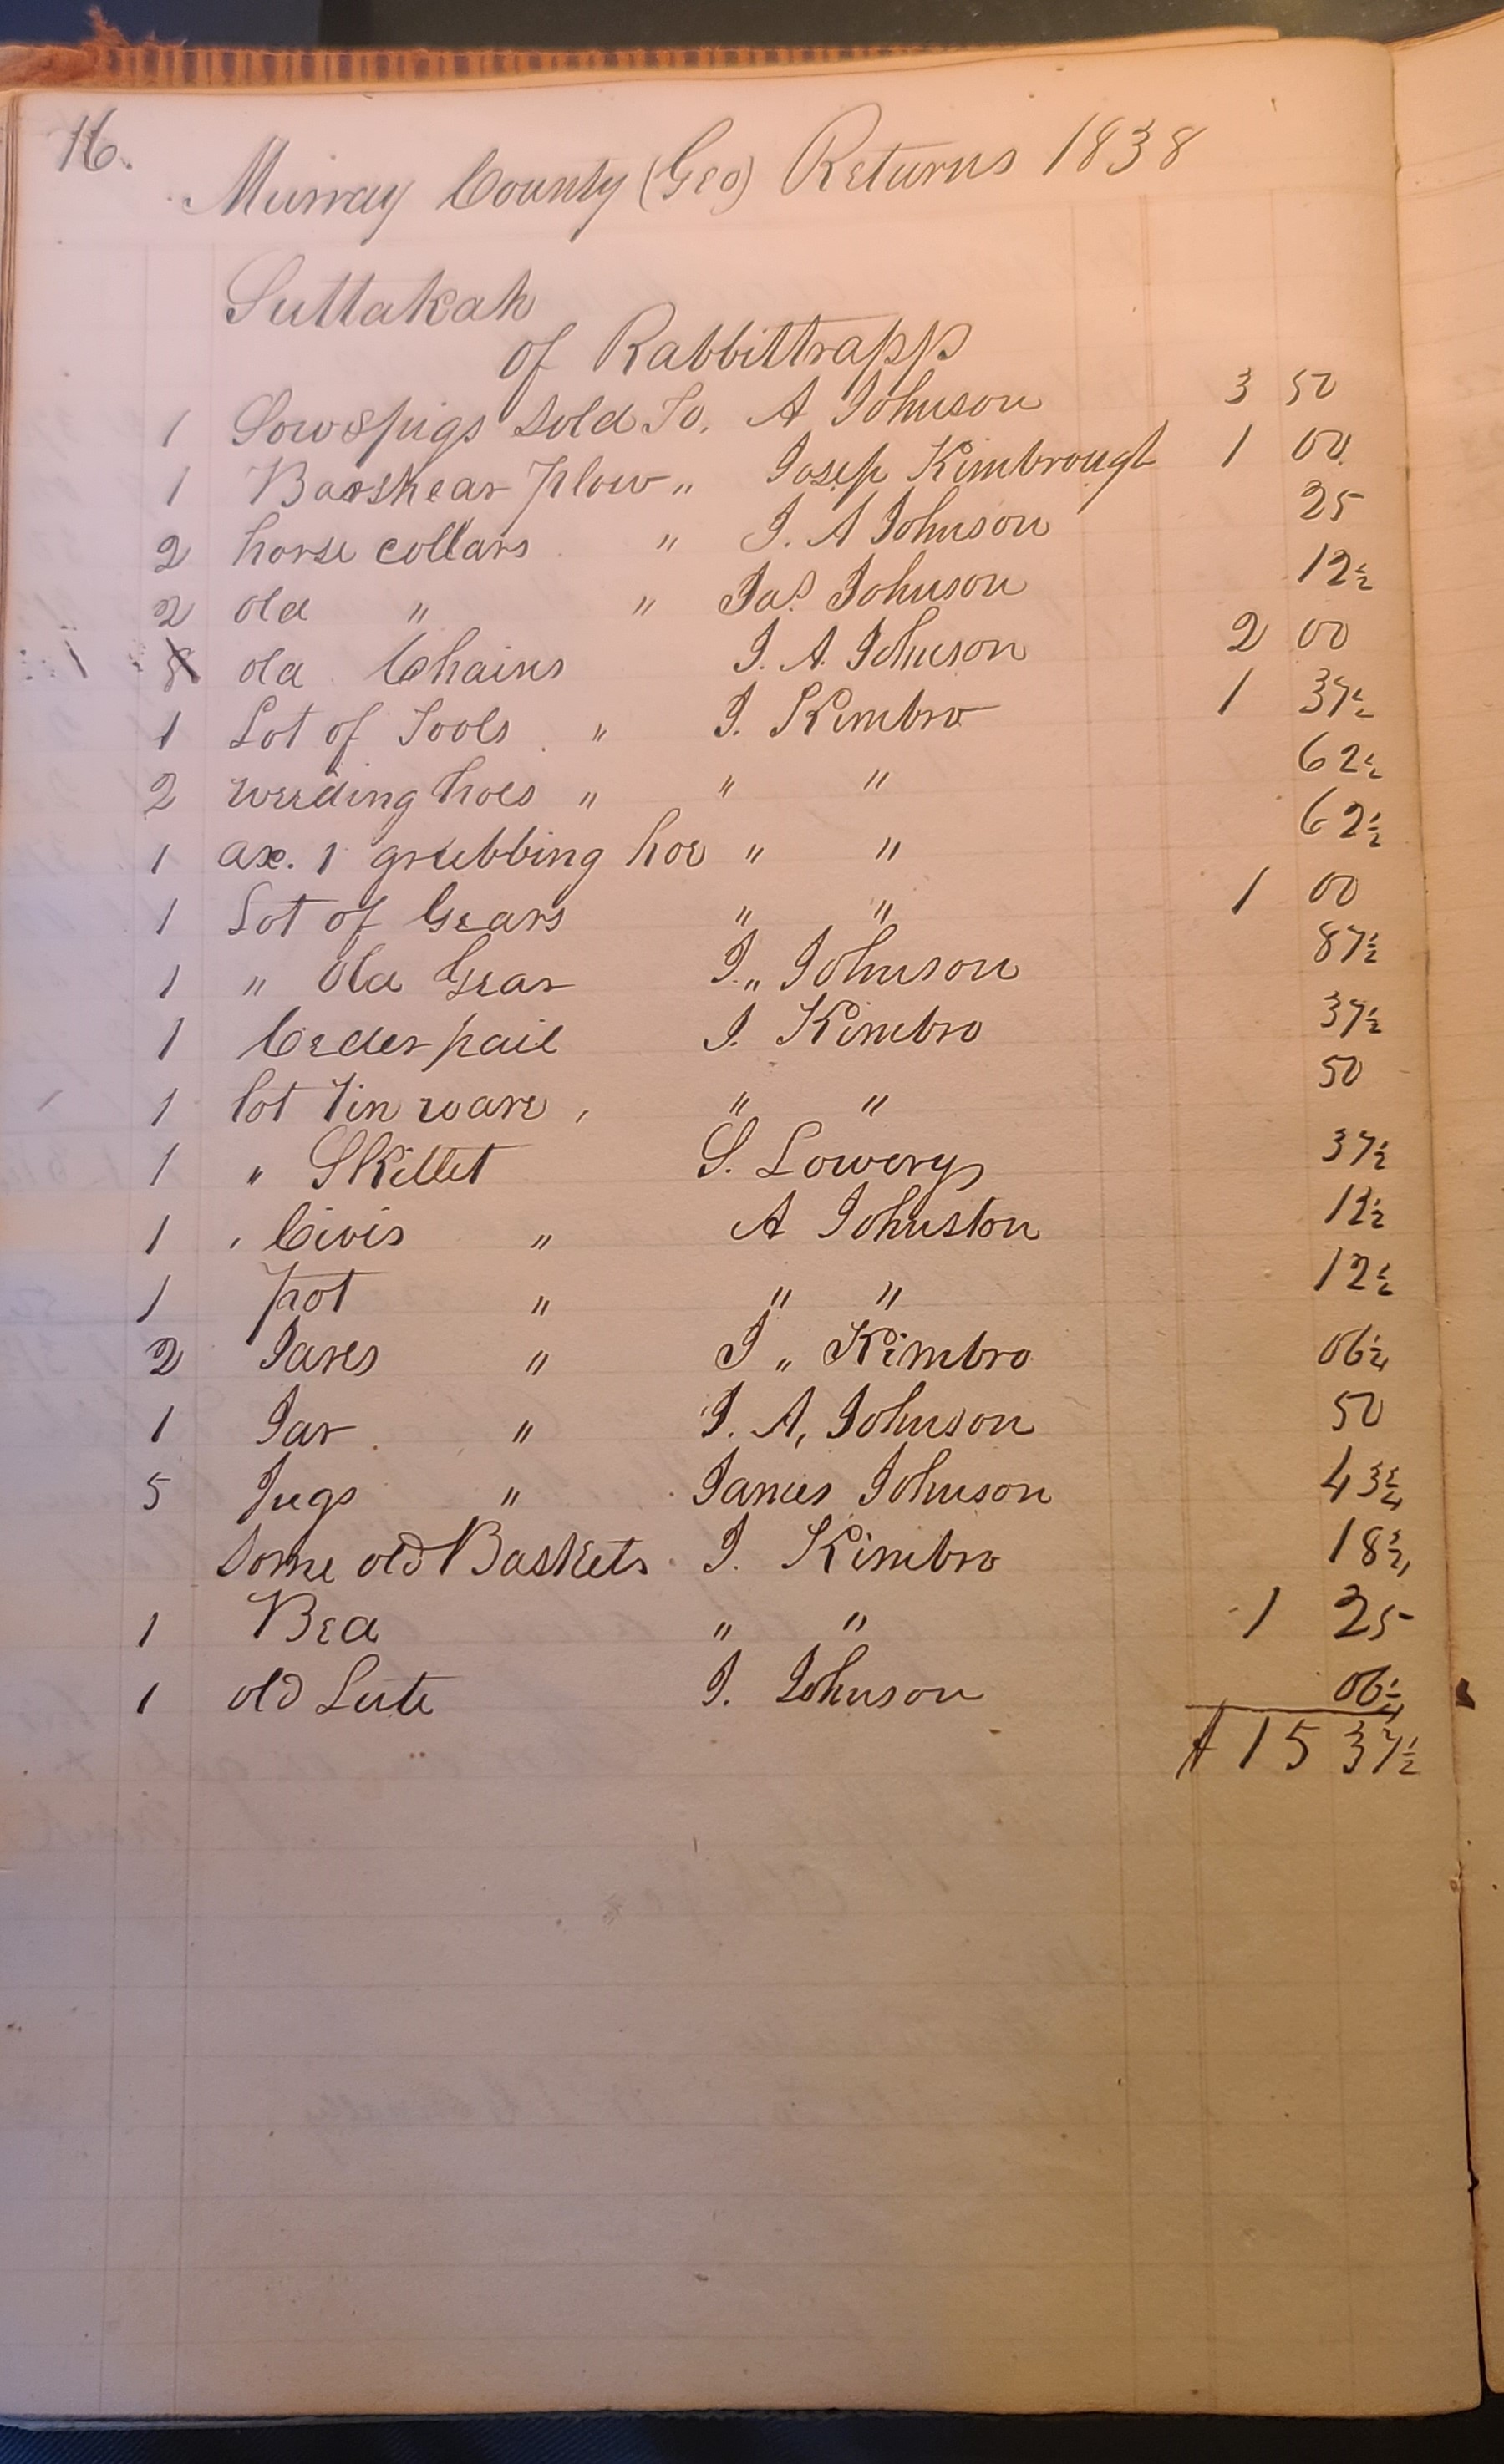 16.
Murray County (Geo) Returns 1838
Suttakah
of Rabbittrapp
1 Sow & pigs Sold To, A Johnson 3 50
1 Barshear plow " Josep Kimbrough 1 00
2 horse collars " J. A Johnson 25
2 old " " Jas. Johnson 12½
old Chains J. A. Johnson 2 00
1 Lot of Tools " J. Kimbro 1 37½
2 weeding hoes " " " 62½
1 ax. 1 grubbing hoe " " 62½
1 Lot of Gears " " 1 00
1 " Old Gear J. " Johnson 87½
1 Ceder pail J. Kimbro 37½
1 lot Tin ware, " " 50
1 " Skillet S. Lowery 37½
1 " Civis " A Johnston 12½
1 pot " " " 12½
2 Jares " J " Kimbro 06¼
1 Jar " J. A, Johnson 50
5 Jugs " James Johnson 43¾
Some old Baskets J. Kimbro 18¾
1 Bed " " 1 25
1 old J. Johnson 06¼
$15 37½